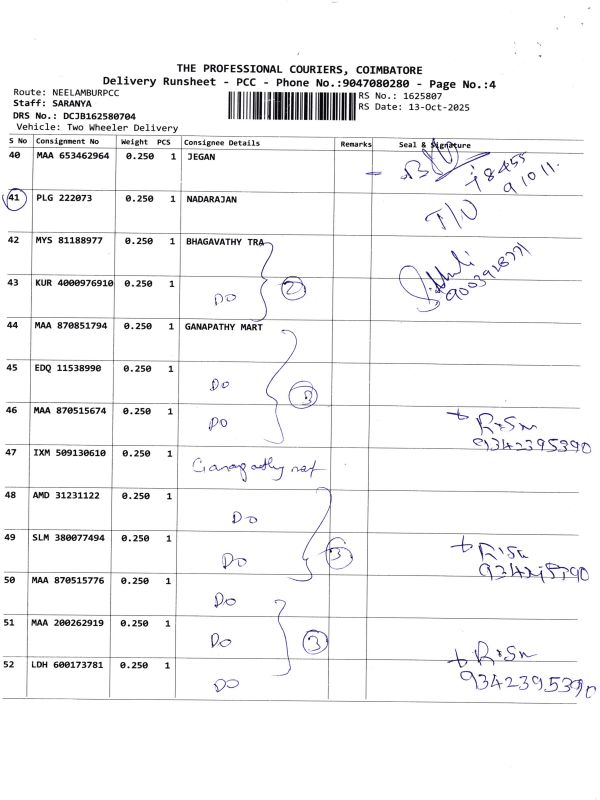 THE PROFESSIONAL COURIERS, COIMBATORE
Delivery Runsheet - PCC - Phone No.:9047080280 - Page No.:4
Route: NEELAMBURPCC
RS No.: 1625807
Staff: SARANYA
RS Date: 13-Oct-2025
DRS No.: DCJB162580704
Vehicle: Two Wheeler Delivery
S No Consignment No Weight PCS Consignee Details Remarks Seal & Signature
40 MAA 653462964 0.250 1 JEGAN
78455
91011
41 PLG 222073 0.250 1 NADARAJAN T/N
42 MYS 81188977 0.250 1 BHAGAVATHY TRA
43 KUR 4000976910 0.250 1 DO 2
44 MAA 870851794 0.250 1 GANAPATHY MART
45 EDQ 11538990 0.250 1 DO 3
46 MAA 870515674 0.250 1 DO R.Sn
9342395390
47 IXM 509130610 0.250 1 Ganapathy
48 AMD 31231122 0.250 1 DO
49 SLM 380077494 0.250 1 DO 3 R.Sn
50 MAA 870515776 0.250 1 DO
51 MAA 200262919 0.250 1 DO 3
52 LDH 600173781 0.250 1 DO R.Sn
9342395390